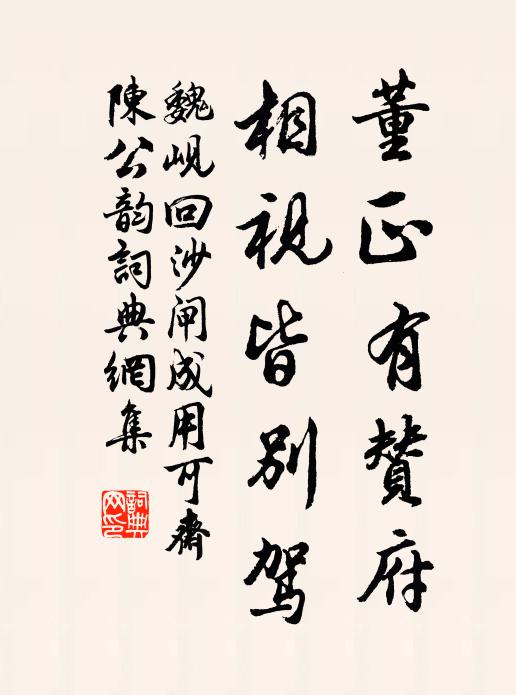 董正有贊府
相視皆別駕
魏峴回沙閘成用可齋
陳公韵詞典網集
詞典网印